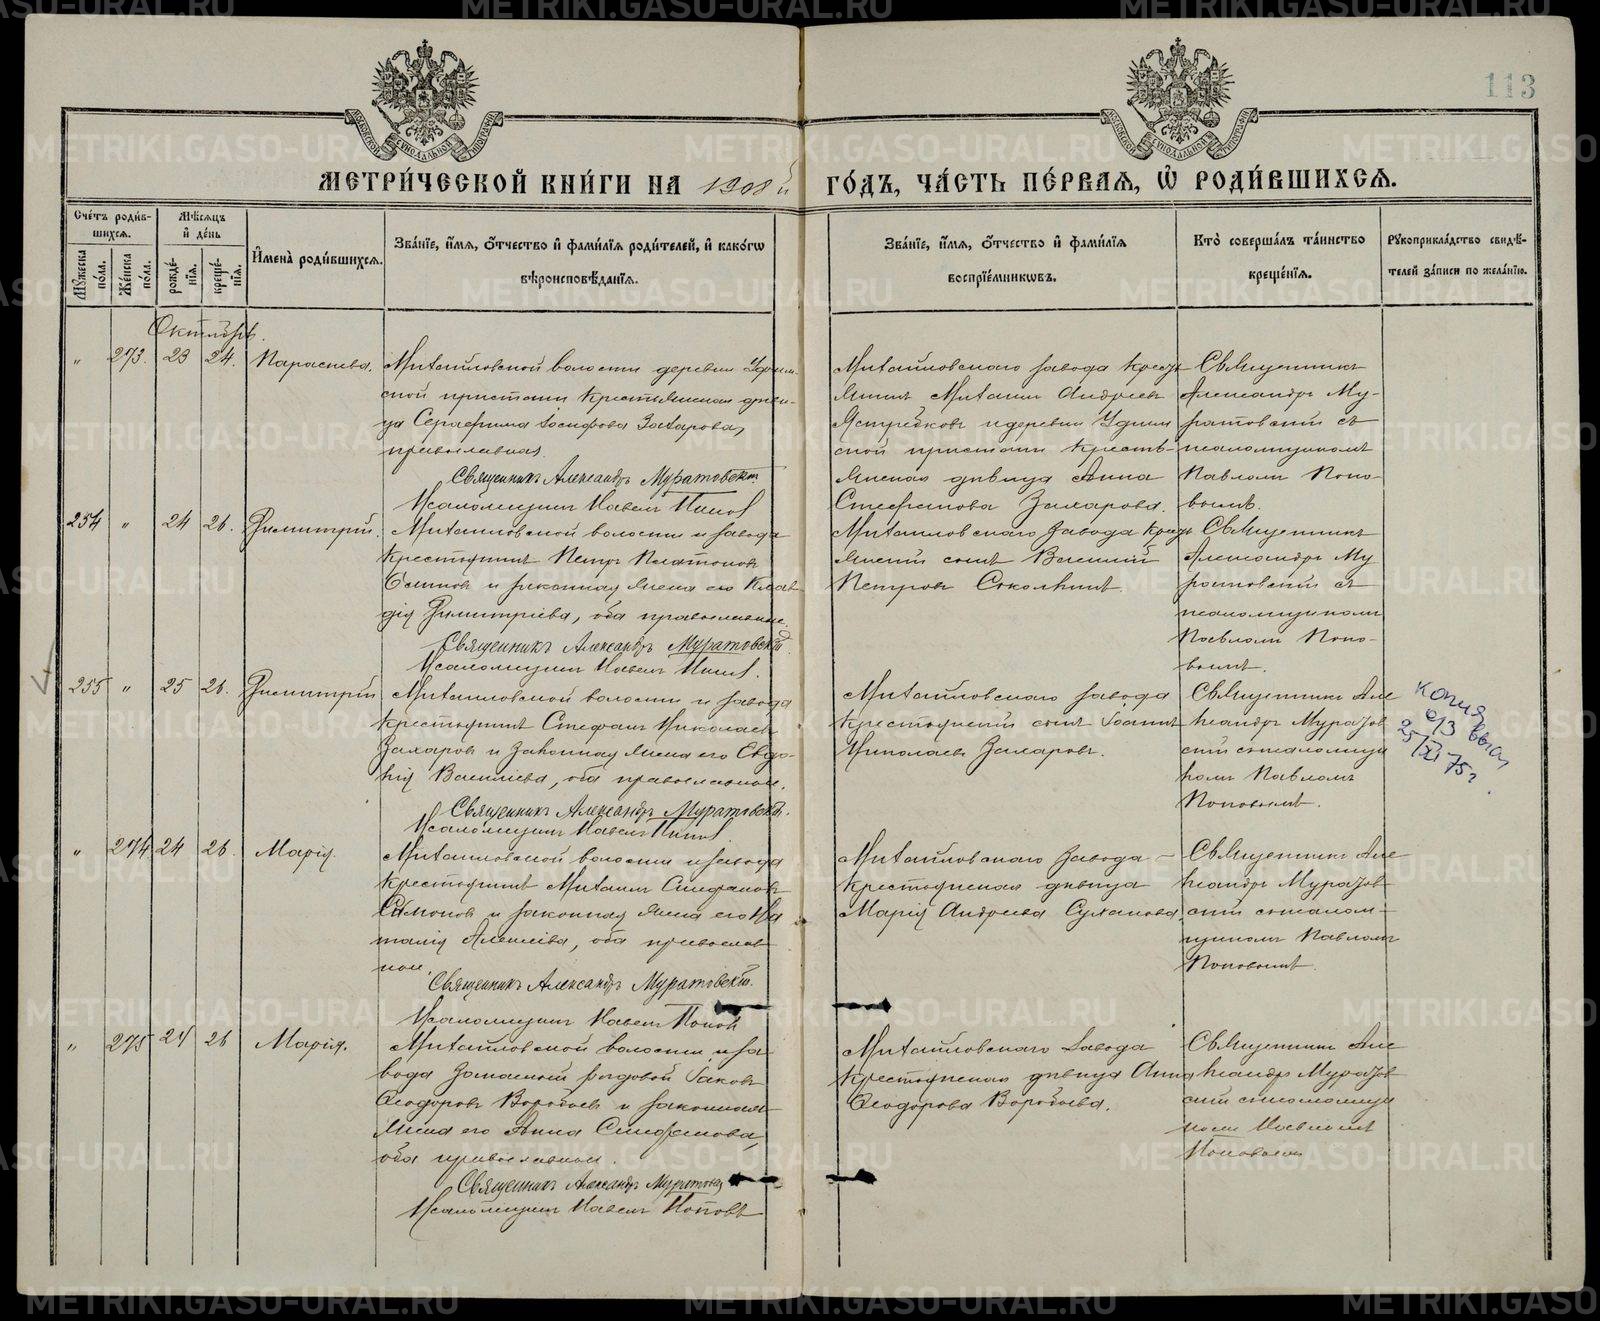 113
МЕТРИ́ЧЕСКОЙ КНИ́ГИ НА 1908 й ГО́ДЪ, ЧА́СТЬ ПЕ́РВАѦ, Ѡ҆ РОДИ́ВШИХСѦ.
Сче́тъ роди́в-
шихсѧ.
Мѣ́сѧцъ
и҆ де́нь
Му́жеска по́ла.
Же́нска по́ла.
рожде́-
нїѧ.
креще́-
нїѧ.
И҆мена̀ роди́вшихсѧ.
Зва́нїе, и҆́мѧ, ѻ҆́тчество и҆ фами́лїѧ роди́телей, и҆ како́гѡ
вѣроисповѣ́данїѧ.
Зва́нїе, и҆́мѧ, ѻ҆́тчество и҆ фами́лїѧ
воспрїе́мникѡвъ.
Кто̀ соверша́лъ та́инство
креще́нїѧ.
Рꙋкоприкла́дство свидѣ́-
телей за́писи по жела́нїю.
Октябрь.
" 273. 23 24. Параскева.
Михайловской волости деревни Уфим-
ской пристани крестьянская дѣви-
ца Серафима Іосифова Захарова,
православная.
Священникъ Александръ Муратовскій
Псаломщикъ Павелъ Поповъ
Михайловскаго завода кресть-
янинъ Михаилъ Андреевъ
Ястребковъ и деревни Уфим
ской пристани кресть-
янская дѣвица Анна
Стефанова Захарова.
Священникъ
Александръ Му-
ратовскій съ
псаломщикомъ
Павломъ Попо-
вымъ.
254 " 24 26. Димитрій.
Михайловской волости и завода
крестьянинъ Петръ Платоновъ
и законная жена его Клав
дія Димитріева, оба православные.
Священникъ Александръ Муратовскій.
Псаломщикъ Павелъ Поповъ.
Михайловскаго Завода кресть
янскій сынъ Василій
Петровъ Соколкинъ.
Священникъ
Александръ Му
ратовскій съ
псаломщикомъ
Павломъ Попо-
вымъ.
255 " 25 26. Димитрій
Михайловской волости и завода
крестьянинъ Стефанъ Николаевъ
Захаровъ и законная жена его Евдо-
кія Василіева, оба православные.
Священникъ Александръ Муратовскій.
Псаломщикъ Павелъ Поповъ.
Михайловскаго завода
крестьянскій сынъ Іоаннъ
Николаевъ Захаровъ.
Священникъ Але
ксандръ Муратов
скій съ псаломщи
комъ Павломъ
Поповымъ.
копия
25/XI 75г.
" 274 24 26. Марія.
Михайловской волости и завода
крестьянинъ Михаилъ Стефановъ
и законная жена его На
талія Алексіева, оба православ
ные.
Священникъ Александръ Муратовскій.
Псаломщикъ Павелъ Поповъ
Михайловскаго Завода
крестьянская дѣвица
Марія Андреева Суханова.
Священникъ Але
ксандръ Муратов
скій съ псалом-
щикомъ Павломъ
Поповымъ.
" 275 24 26 Марія.
Михайловской волости и за
вода Запасный рядовой Іаковъ
Ѳеодоровъ Воробьевъ и законная
жена его Анна Стефанова,
оба православные.
Священникъ Александръ Муратовскій
Псаломщикъ Павелъ Поповъ
Михайловскаго Завода
крестьянская дѣвица Анна
Ѳеодорова Воробьева.
Священникъ Але
ксандръ Муратов
скій съ псаломщи
комъ Павломъ
Поповымъ
METRIKI.GASO-URAL.RU